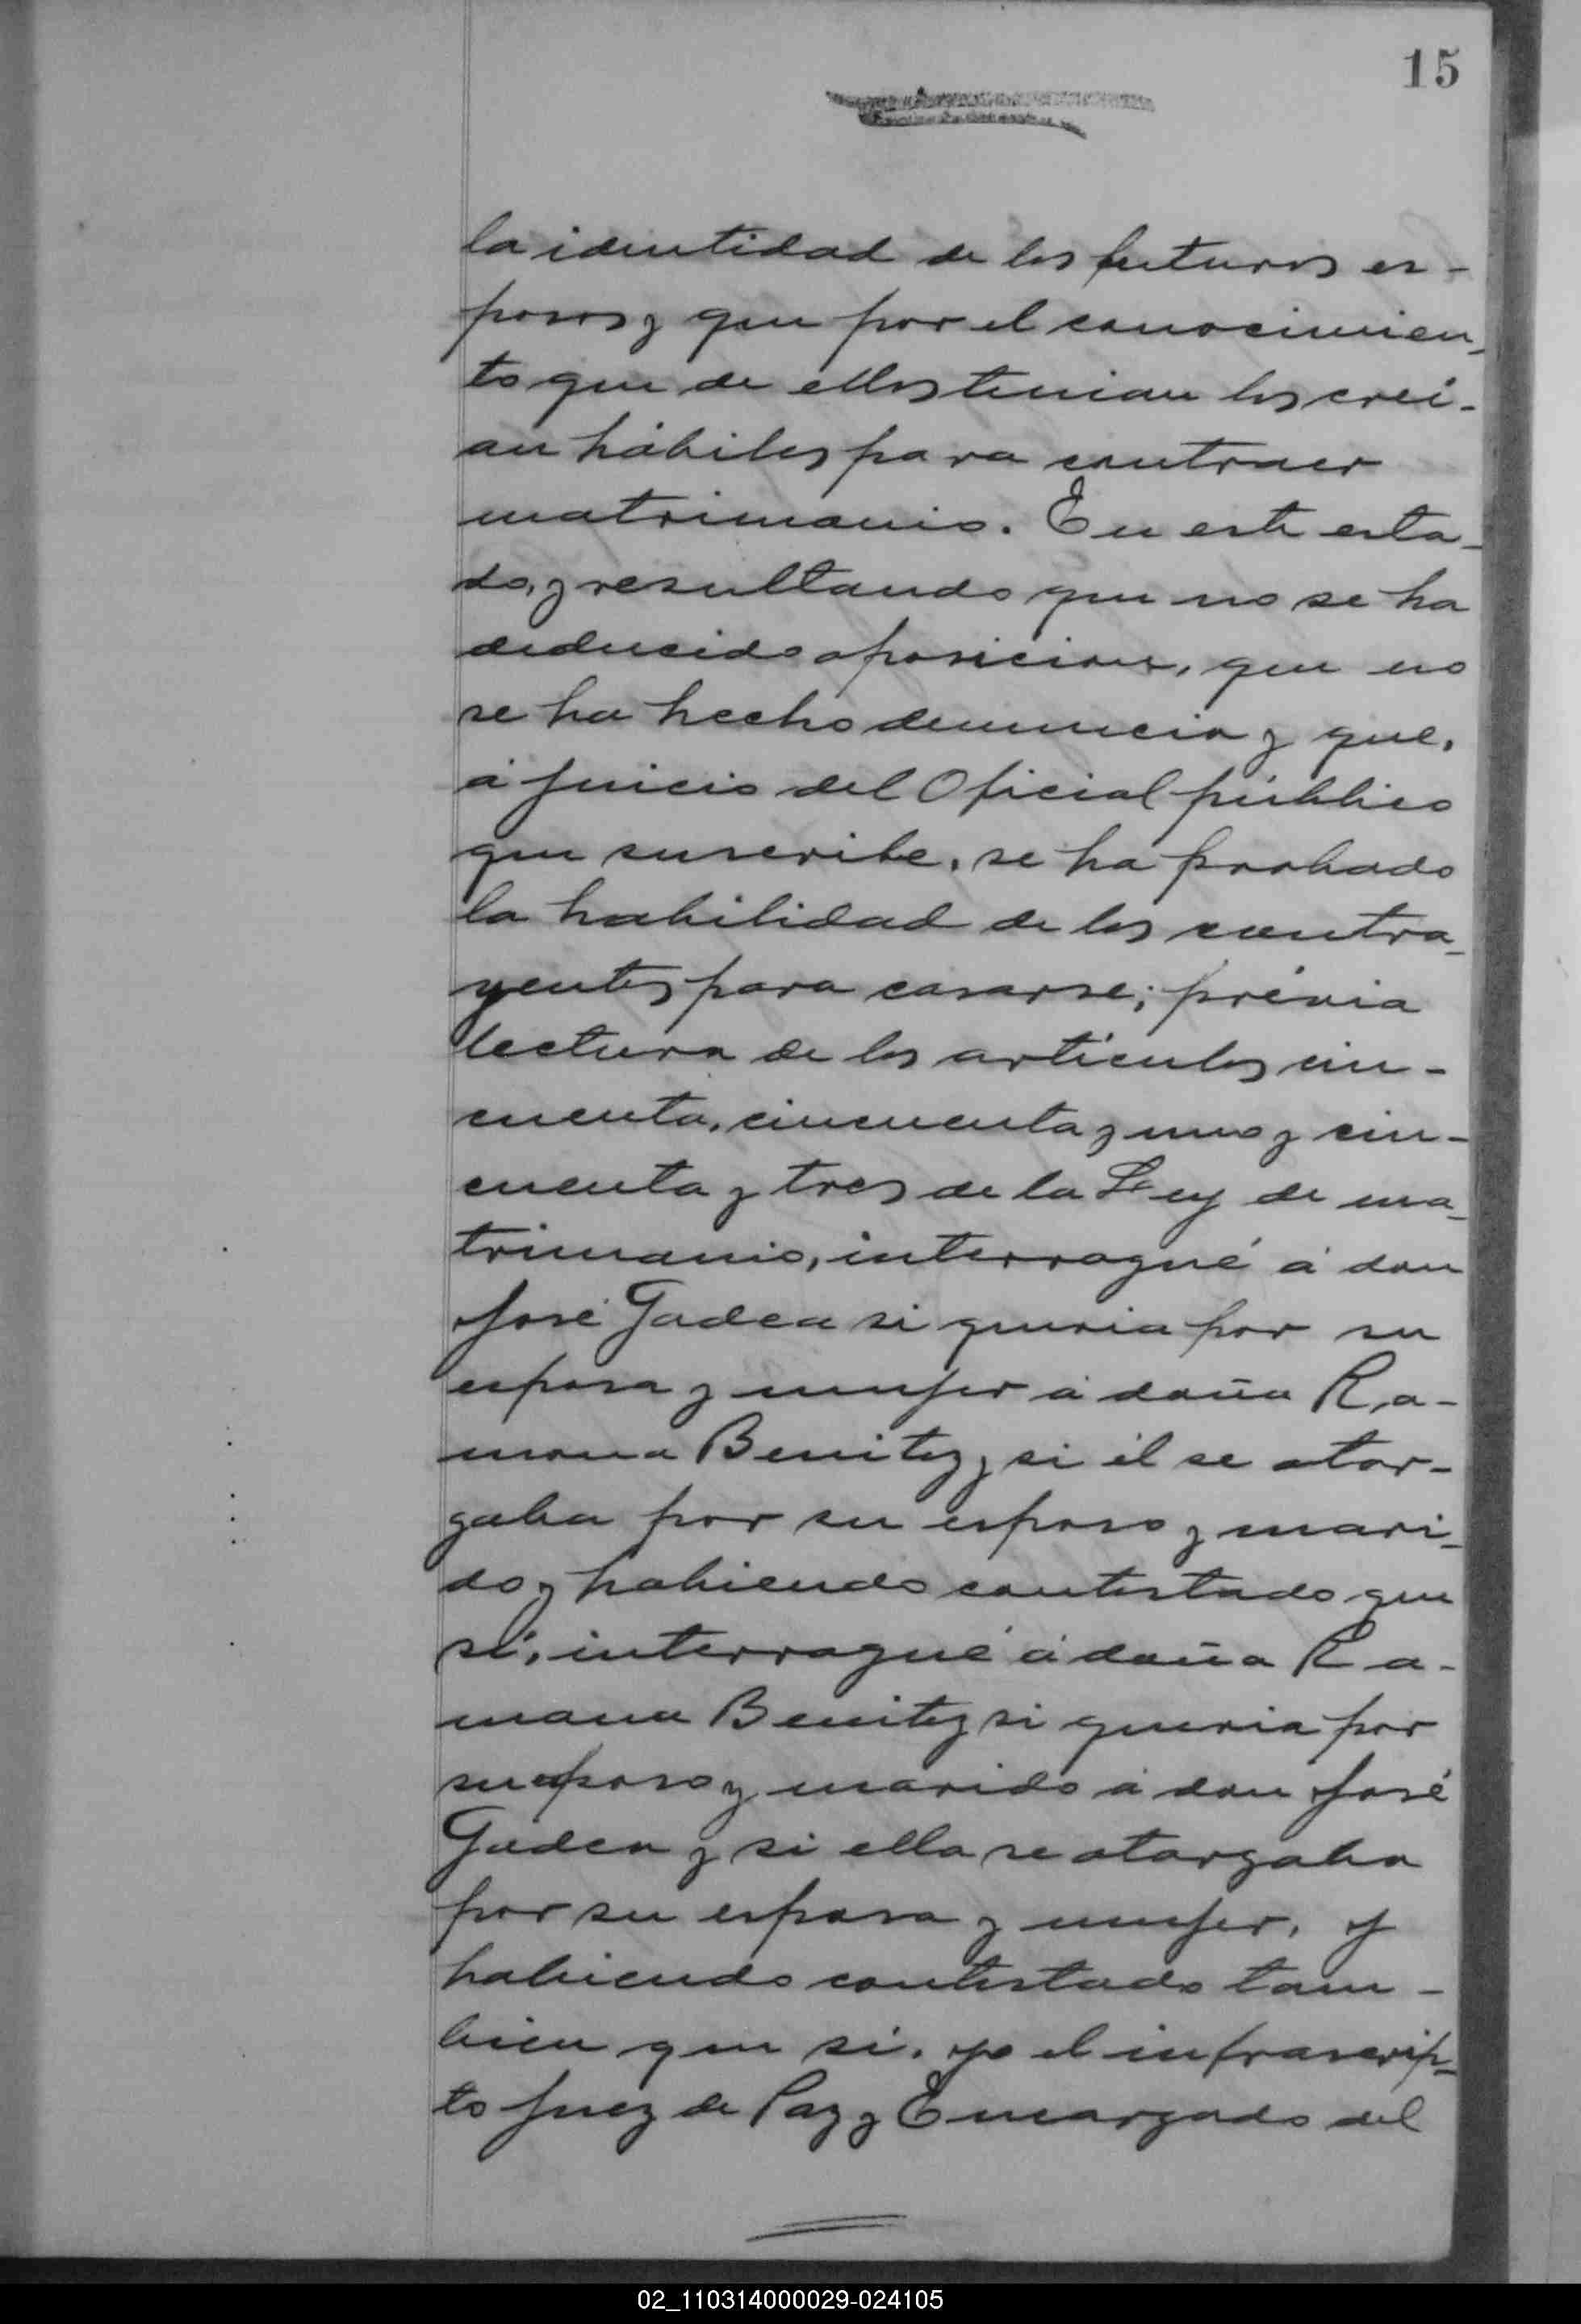 15
la identidad de los futuros es-
posos y que por el conocimien-
to que de ellos tenian los creí-
an hábiles para contraer
matrimonio. En este esta-
do, y resultando que no se ha
deducido oposicion, que no
se ha hecho denuncia y que,
á juicio del Oficial público
que suscribe, se ha probado
la habilidad de los contra-
yentes para casarse; prévia
lectura de los artículos cin-
cuenta, cincuenta y uno y cin-
cuenta y tres de la Ley de ma-
trimonio, interrogué á don
José Gadea si queria por su
esposa y mujer á doña Ra-
mona Benitez y si él se otor-
gaba por su esposo y mari-
do y habiendo contestado que
sí, interrogué á doña Ra-
mona Benitez si queria por
su esposo y marido á don José
Gadea y si ella se otorgaba
por su esposa y mujer, y
habiendo contestado tam-
bien que sí, yo el infrascrip-
to Juez de Paz y Encargado del
02_110314000029-024105